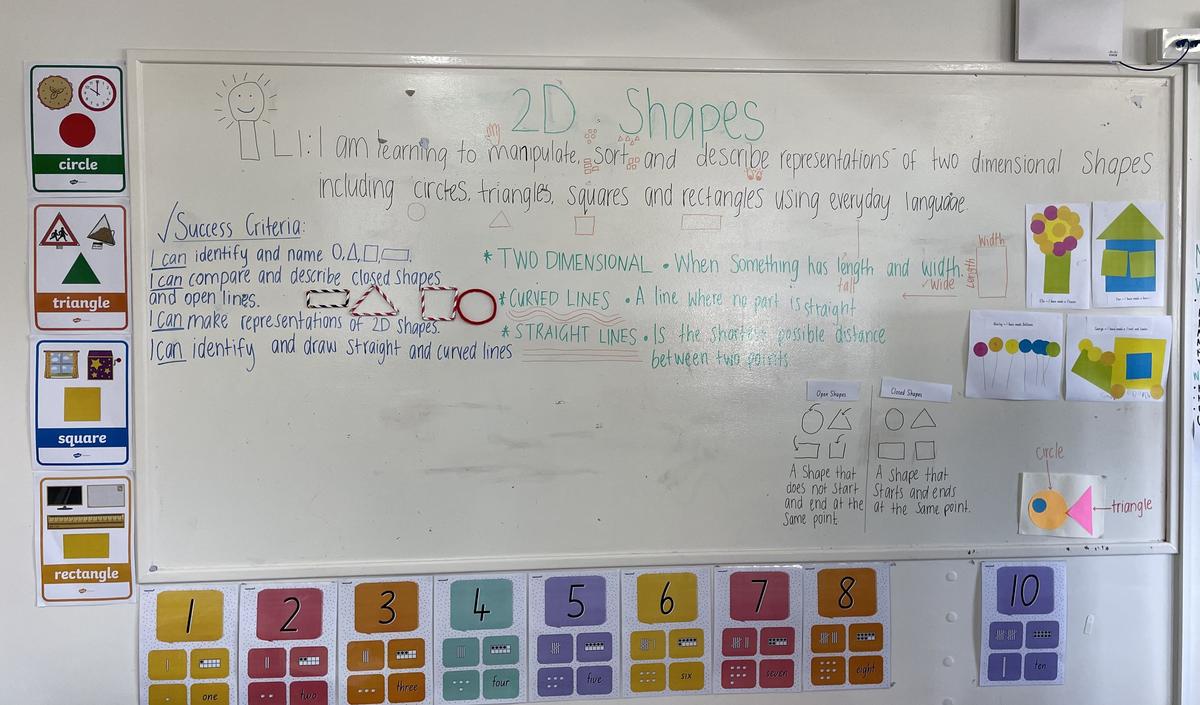 2D Shapes
LI: I am learning to manipulate, sort and describe representations of two dimensional shapes
including circles, triangles, squares and rectangles using everyday language.
my
✓ Success Criteria:
I can identify and name
I can compare and describe closed shapes
and open lines.
I can make representations of 2D shapes.
I can identify and draw straight and curved lines
* TWO DIMENSIONAL • When something has length and width.
tall
wide
* CURVED LINES • A line where no part is straight
* STRAIGHT LINES • Is the shortest possible distance
between two points
width
length
Open Shapes
A shape that
does not start
and end at the
same point
Closed Shapes
A shape that
starts and ends
at the same point.
circle
triangle
circle
triangle
square
rectangle
1
one
2
two
3
three
4
four
5
five
6
six
7
seven
8
eight
10
ten